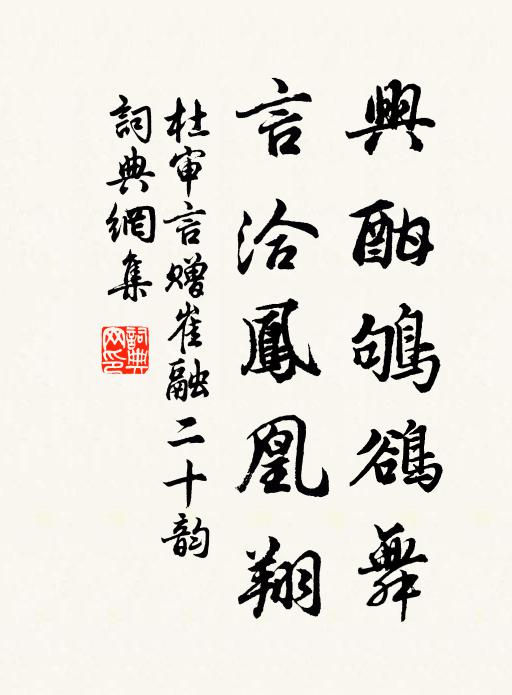 興酣鴝鵒舞
言洽鳳凰翔
杜审言赠崔融二十韵
詞典網集
詞典网印